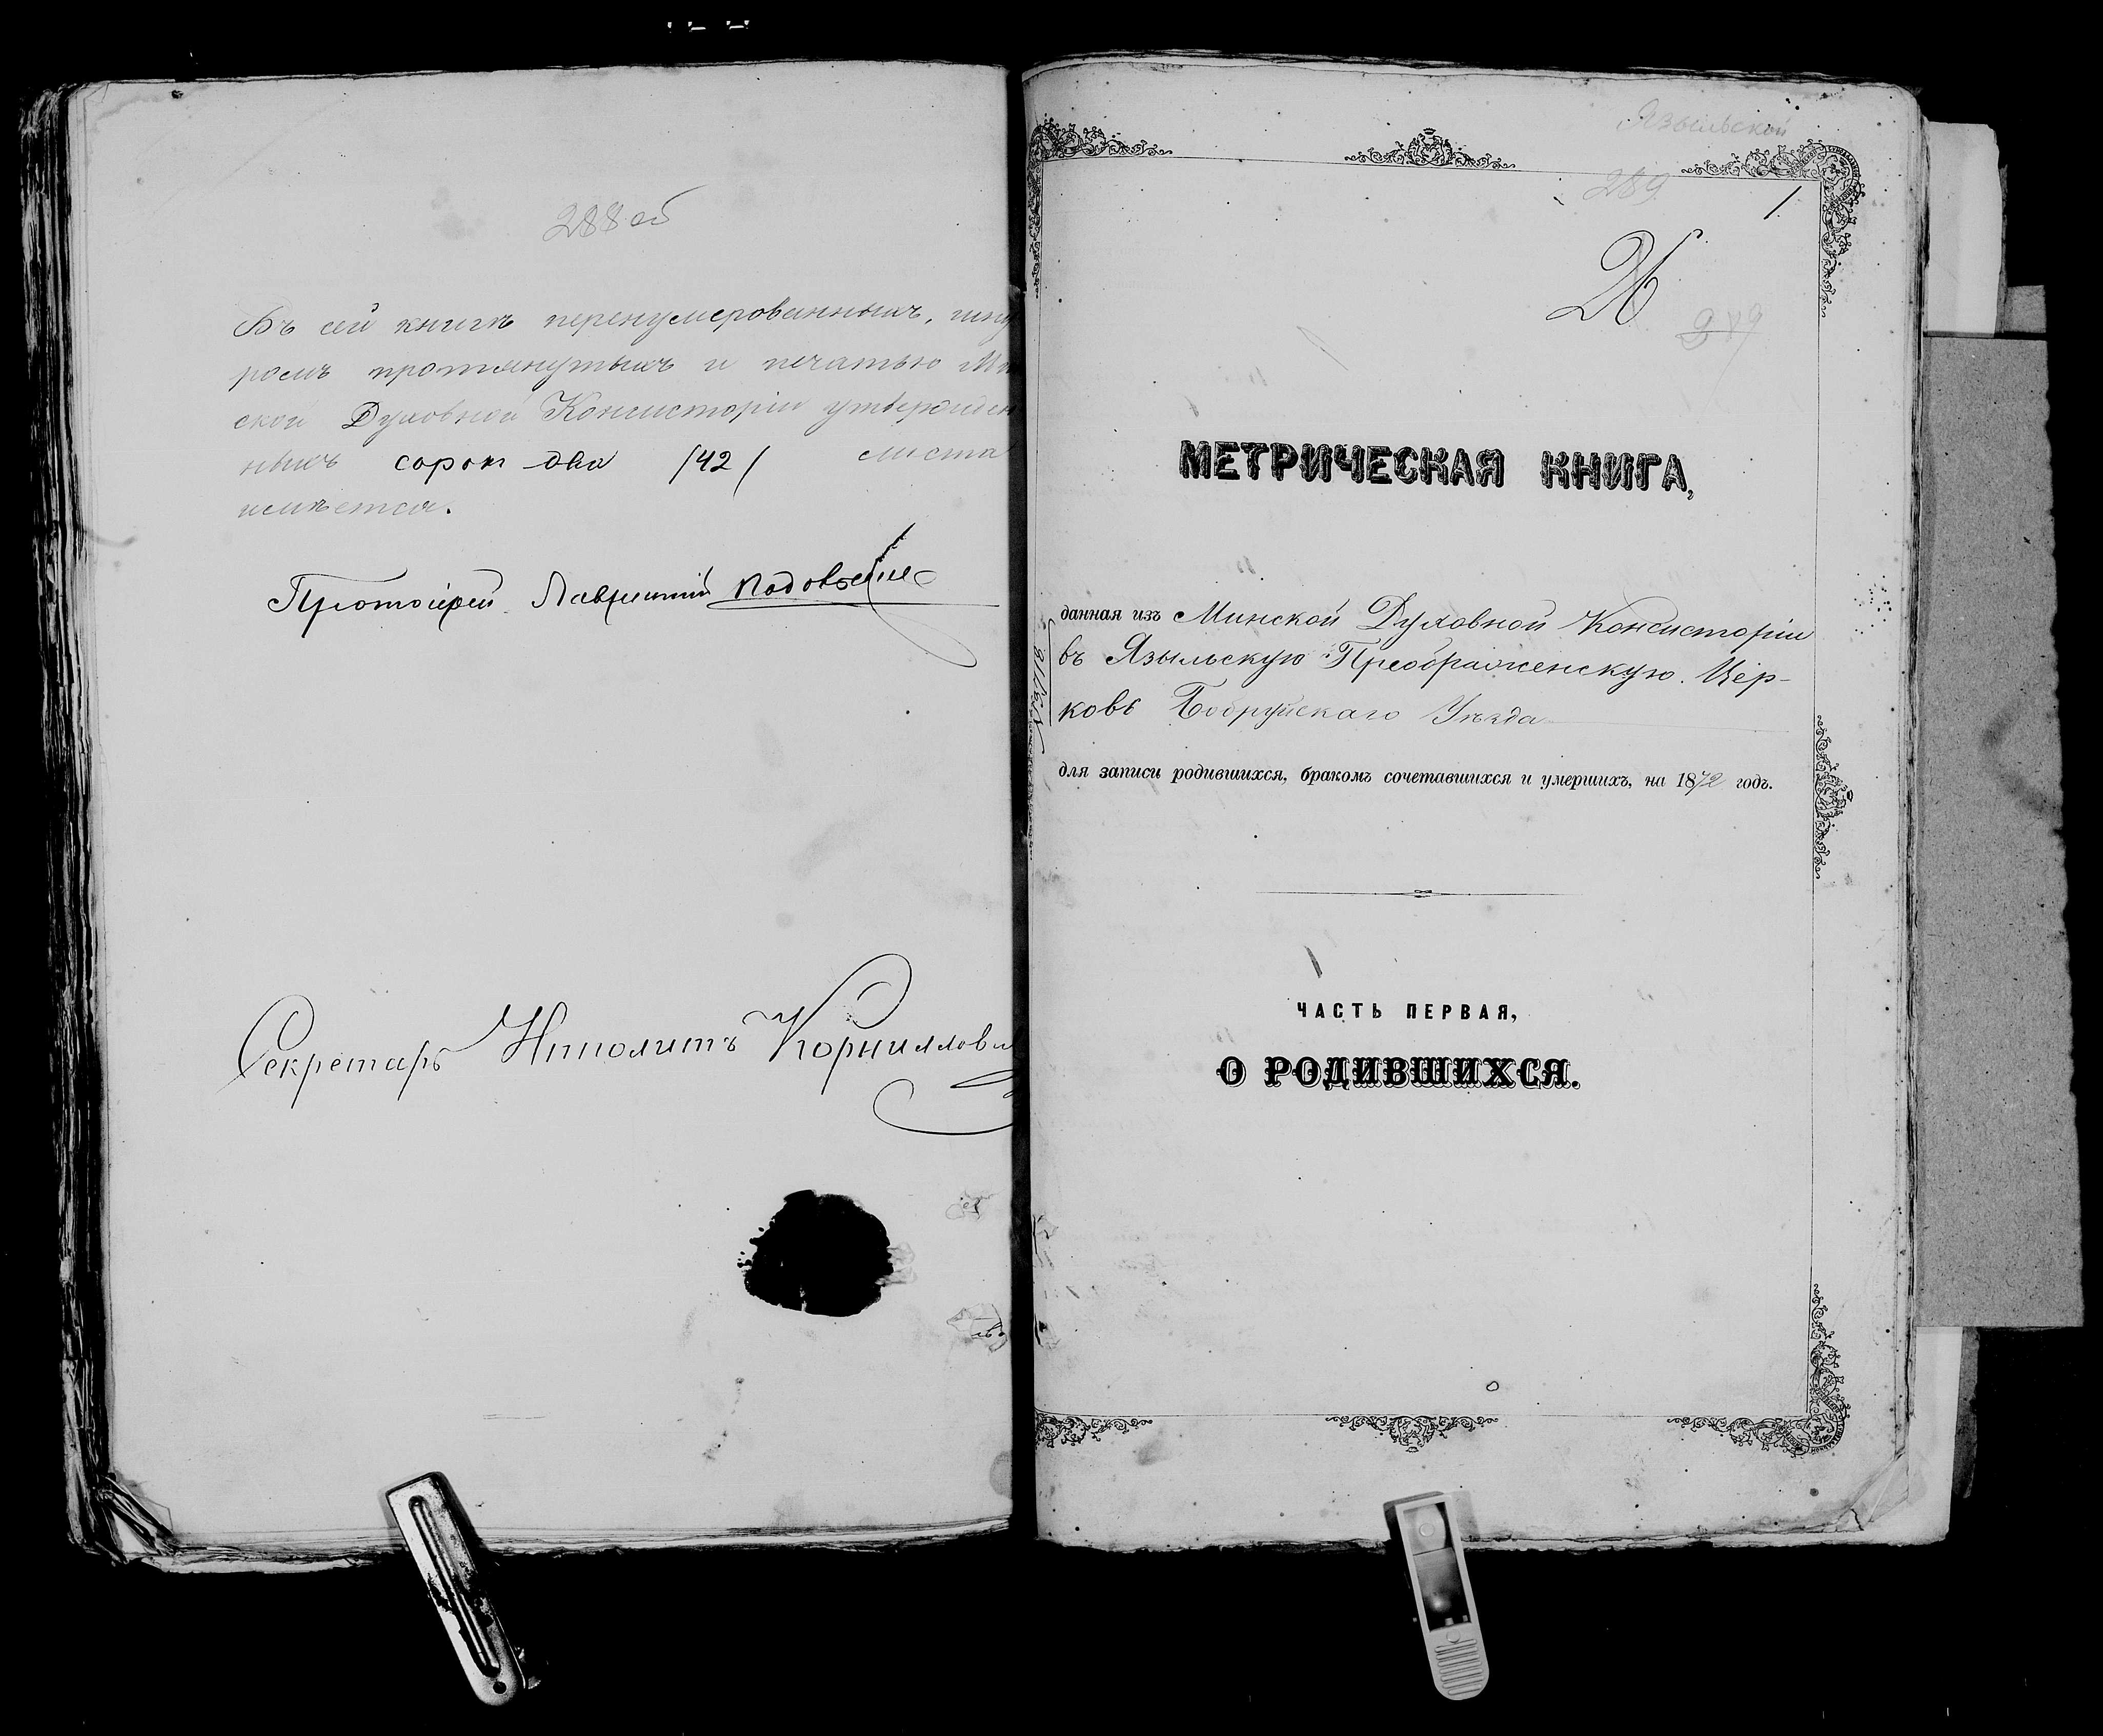 288 об
Въ сей книгѣ перенумерованныхъ, шну
ромъ протянутыхъ и печатью Ми
ской Духовной Консисторіи утвержден
ныхъ сорок два /42/ листа
имѣется.
Протоіерей Лаврентій
Секретарь Ипполитъ Корнилови
Языльской
289
1
26
289
МЕТРИЧЕСКАЯ КНИГА,
данная изъ Минской Духовной Консисторіи
въ Языльскую Преображенскую Цер-
ковь Бобруйскаго Уѣзда
для записи родившихся, бракомъ сочетавшихся и умершихъ, на 1872 годъ.
ЧАСТЬ ПЕРВАЯ,
О РОДИВШИХСЯ.